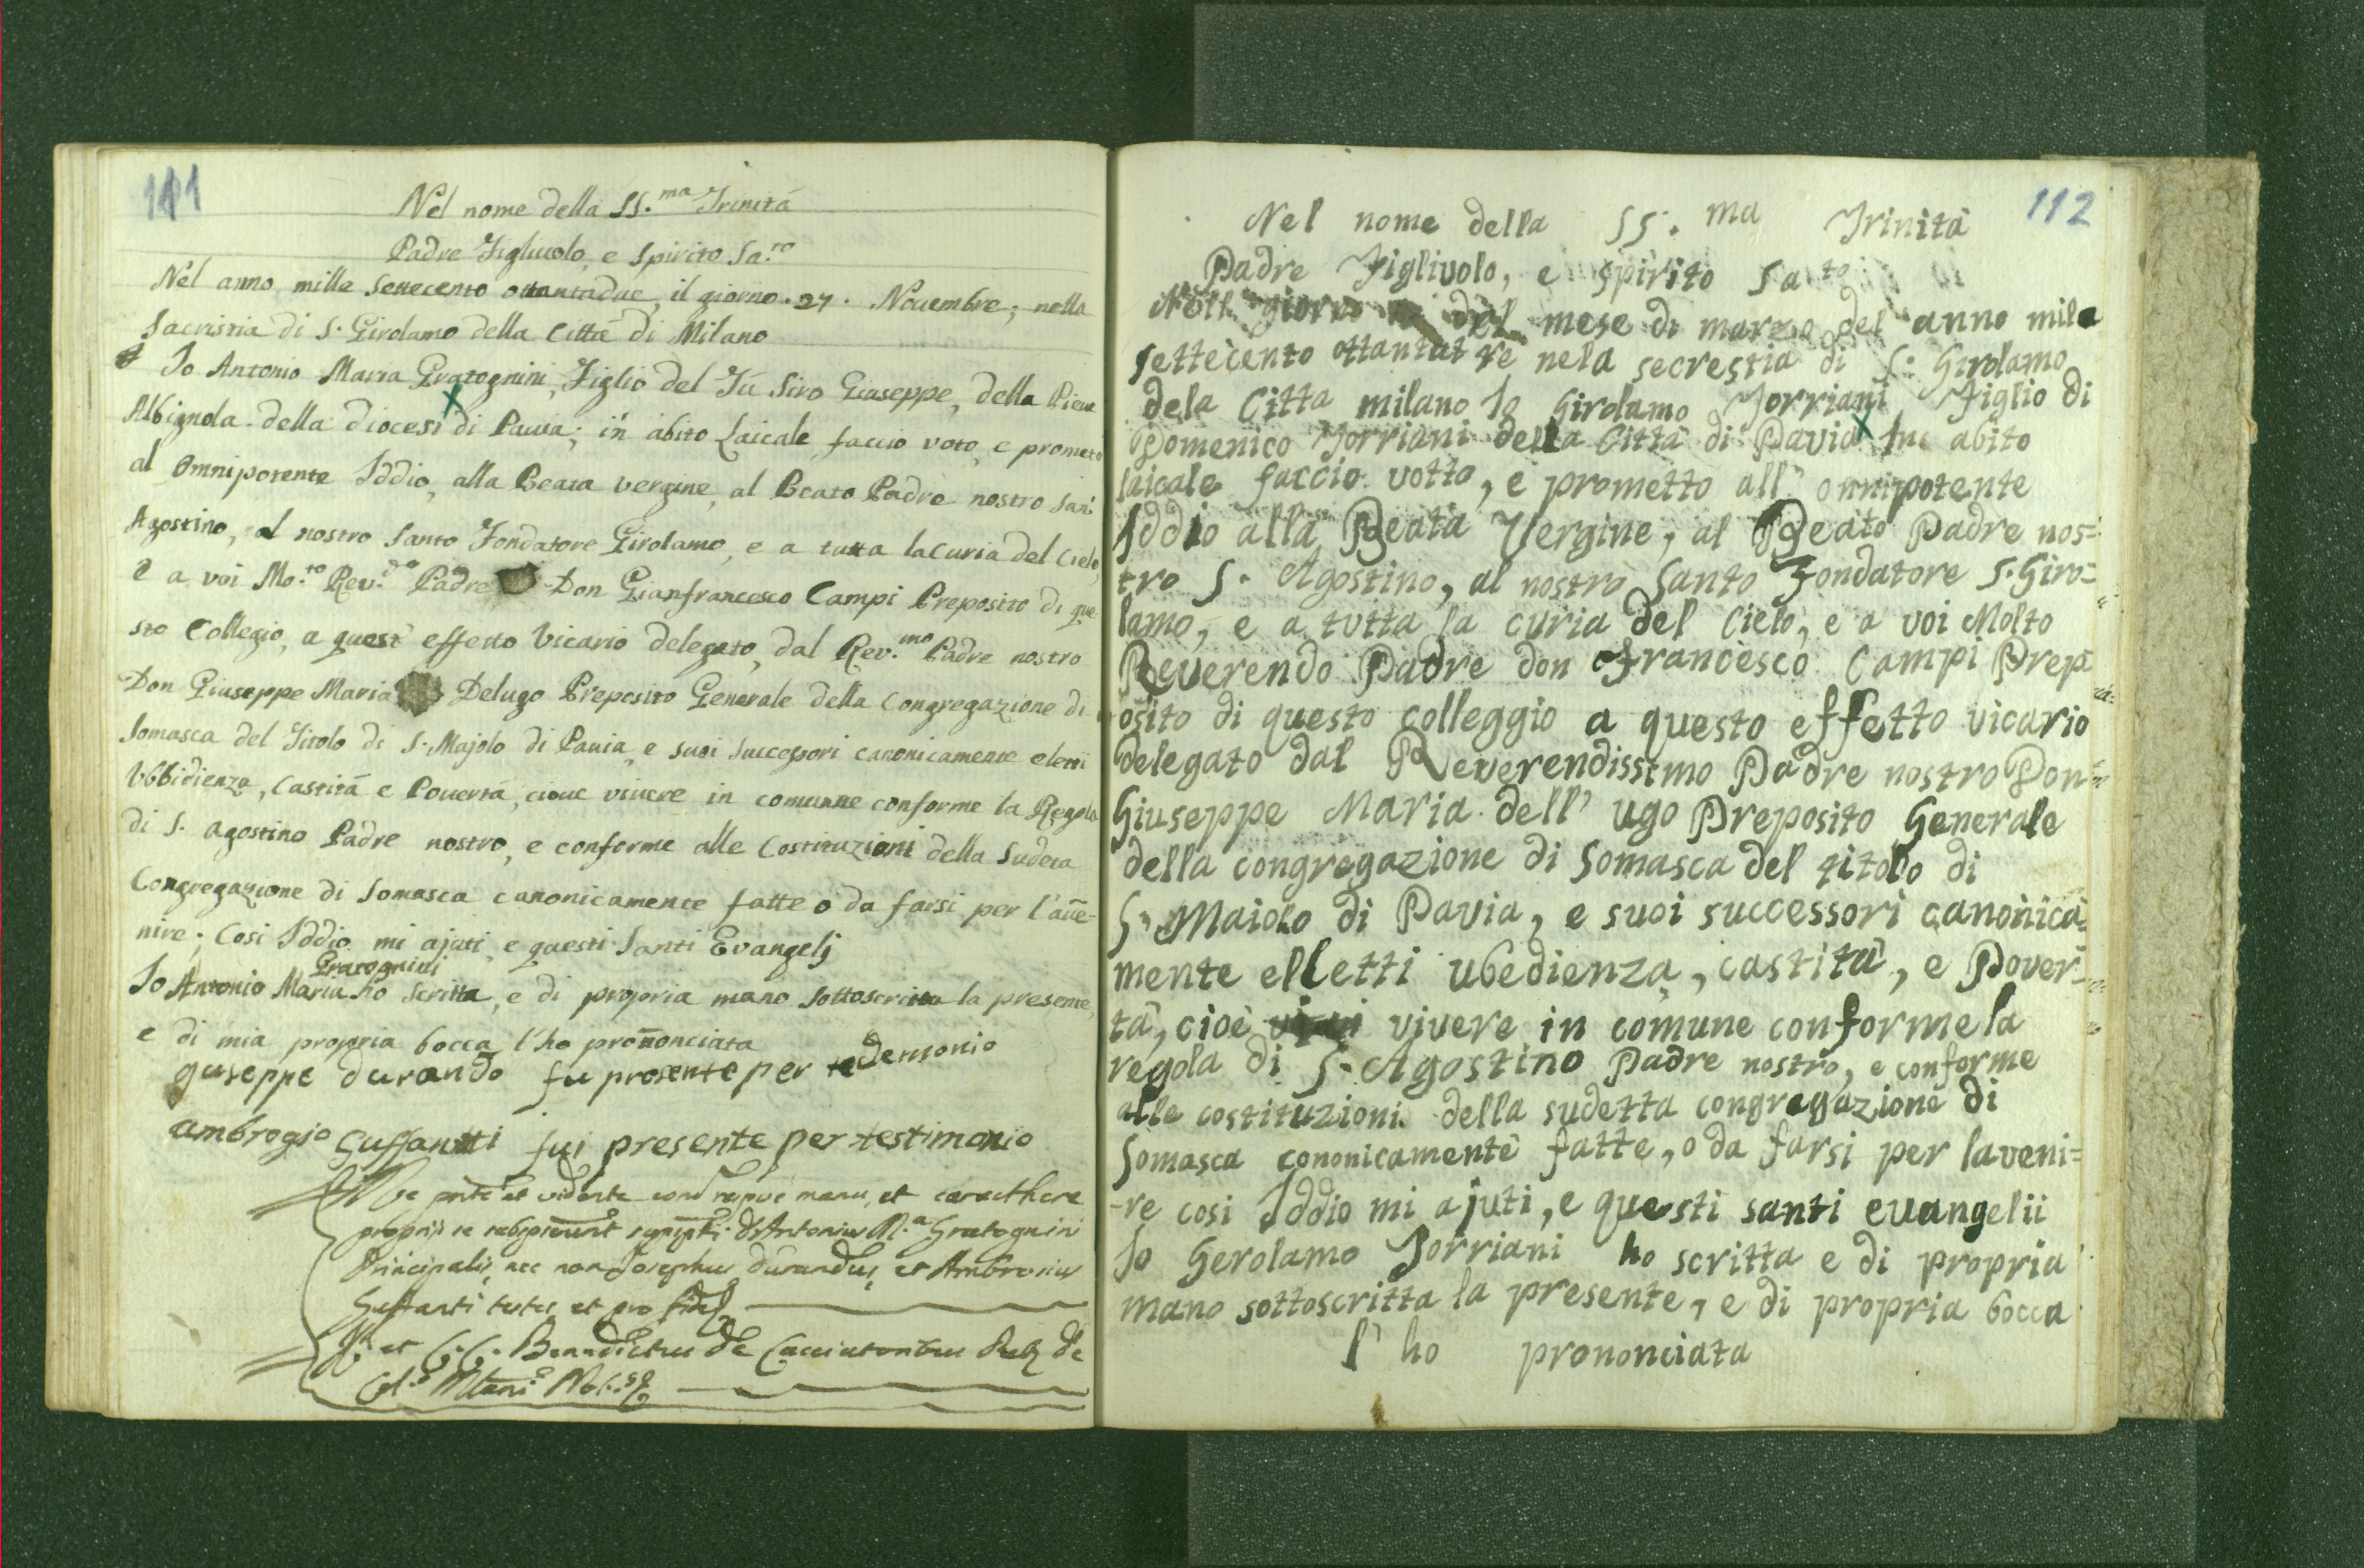 111
Nel nome della SS.ma Trinitá
Padre Figliuolo, e Spirito Sa.to
Nel anno mille settecento ottantadue, il giorno. 27. Nouembre; nella
Sacristia di S. Girolamo della Cittá di Milano
Io Antonio Maria Gratognini, Figlio del Fú Siro Giuseppe, della Pieue
Albignola della diocesi di Pauia; in abito Laicale faccio voto, e prometo
al Omnipotente Iddio, alla Beata vergine, al Beato Padre nostro San
Agostino, al nostro Santo Fondatore Girolamo, e a tutta la Curia del Cielo,
e a voi Mo.to Rev.do Padre Don Gianfrancesco Campi Preposito di que
sto Collegio, a quest' effetto Vicario delegato, dal Rev.mo Padre nostro
Don Giuseppe Maria Delugo Preposito Generale della Congregazione di
Somasca del Titolo di S. Majolo di Pauia, e suoi Successori canonicamente eletti
Ubbidienza, Castitá e Pouertá, cioue viuere in comunne conforme la Regola
di S. agostino Padre nostro, e conforme alle Costituzioni della Sudeta
Congregazione di Somasca canonicamente fatte o da farsi per l'auue-
nire; Cosi Iddio mi ajuti, e questi Santi Evangelj
Gratognini
Io Antonio Maria ho scritta, e di propria mano sottoscritta la presente,
e di mia propria bocca l'ho prononciata
guseppe durando fu presente per te demonio
ambrogio Guffantti fui presente per testimonio
manu, et caracthere
Antonius M.a Gratognini
Principalis, nec non Josephus Durandus, et Ambrosius
Guffanti testes et pro fide
et Benedictus de Cacciatoribus
112
Nel nome della SS.ma Trinità
Padre Figlivolo, e Spirito Santo
Nell giorno del mese di marzo del anno mile
settecento ottantatre nela secrestia di S. Girolamo
dela Citta milano Io Girolamo Torriani Figlio di
Domenico Torriani della Città di Pavia In abito
laicale faccio votto, e prometto all' onnipotente
Iddio alla Beata Vergine, al Beato Padre nos=
tro S. Agostino, al nostro Santo Fondatore S. Giro=
lamo, e a tutta la curia del Cielo, e a voi Molto
Reverendo Padre don Francesco Campi Prep
osito di questo colleggio a questo effetto vicario
delegato dal Reverendissimo Padre nostro Don
Giuseppe Maria dell' ugo Preposito Generale
della congregazione di Somasca del titolo di
S. Maiolo di Pavia, e suoi successori canonica=
mente elletti ubedienza, castità, e Pover=
tà, cioè vivere in comune conforme la
regola di S. Agostino Padre nostro, e conforme
alle costituzioni della sudetta congregazione di
Somasca cononicamente fatte, o da farsi per laveni=
-re cosi Iddio mi ajuti, e questi santi evangelii
Io Gerolamo Torriani ho scritta e di propria
mano sottoscritta la presente, e di propria bocca
l' ho prononciata